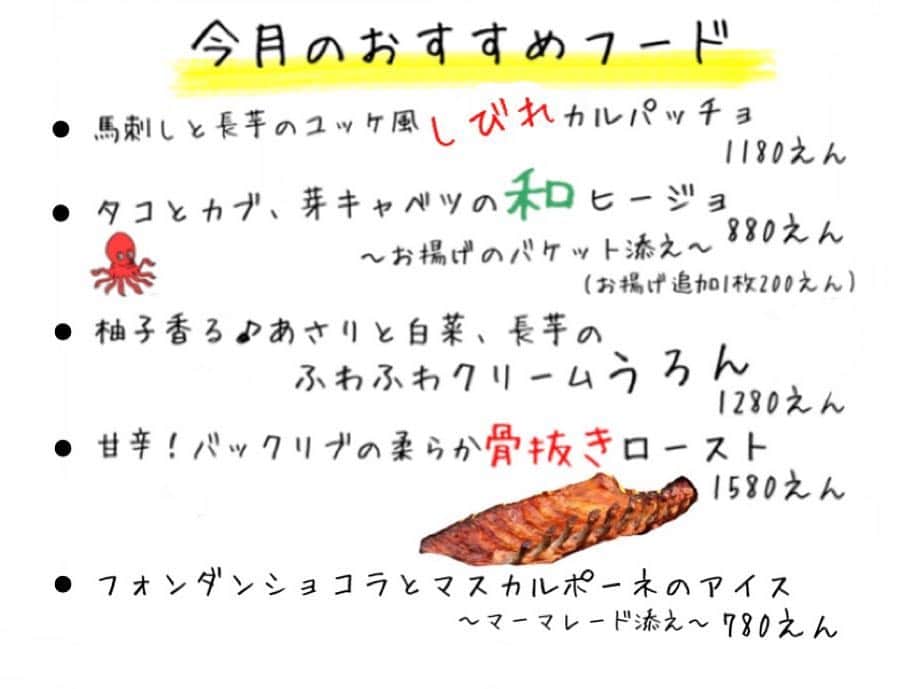 今月のおすすめフード
● 馬刺しと長芋のユッケ風しびれカルパッチョ
1180えん
● タコとカブ、芽キャベツの和ヒージョ
880えん
～お揚げのバケット添え～
(お揚げ追加1枚200えん)
● 柚子香る♪あさりと白菜、長芋の
ふわふわクリームうろん
1280えん
● 甘辛！バックリブの柔らか骨抜きロースト
1580えん
● フォンダンショコラとマスカルポーネのアイス
～マーマレード添え～ 780えん